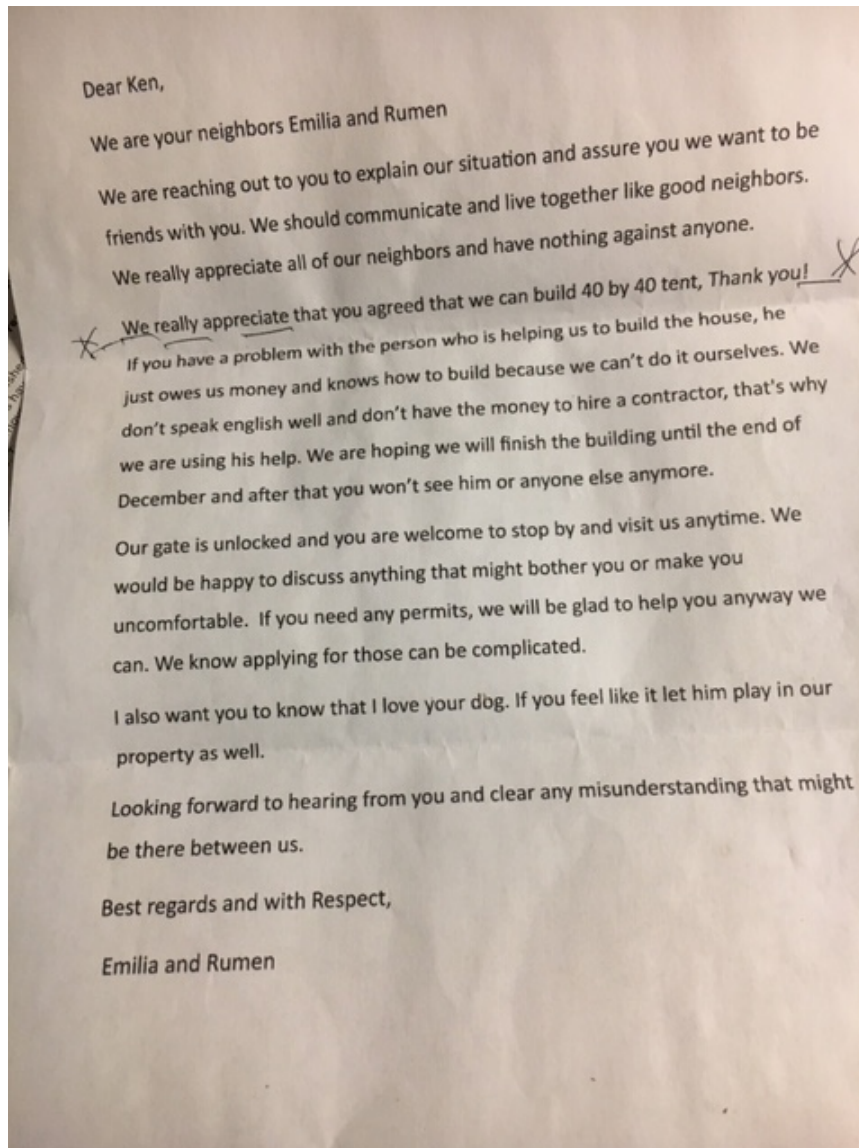 Dear Ken,
We are your neighbors Emilia and Rumen
We are reaching out to you to explain our situation and assure you we want to be
friends with you. We should communicate and live together like good neighbors.
We really appreciate all of our neighbors and have nothing against anyone.
We really appreciate that you agreed that we can build 40 by 40 tent, Thank you!
If you have a problem with the person who is helping us to build the house, he
just owes us money and knows how to build because we can't do it ourselves. We
don't speak english well and don't have the money to hire a contractor, that's why
we are using his help. We are hoping we will finish the building until the end of
December and after that you won't see him or anyone else anymore.
Our gate is unlocked and you are welcome to stop by and visit us anytime. We
would be happy to discuss anything that might bother you or make you
uncomfortable. If you need any permits, we will be glad to help you anyway we
can. We know applying for those can be complicated.
I also want you to know that I love your dog. If you feel like it let him play in our
property as well.
Looking forward to hearing from you and clear any misunderstanding that might
be there between us.
Best regards and with Respect,
Emilia and Rumen